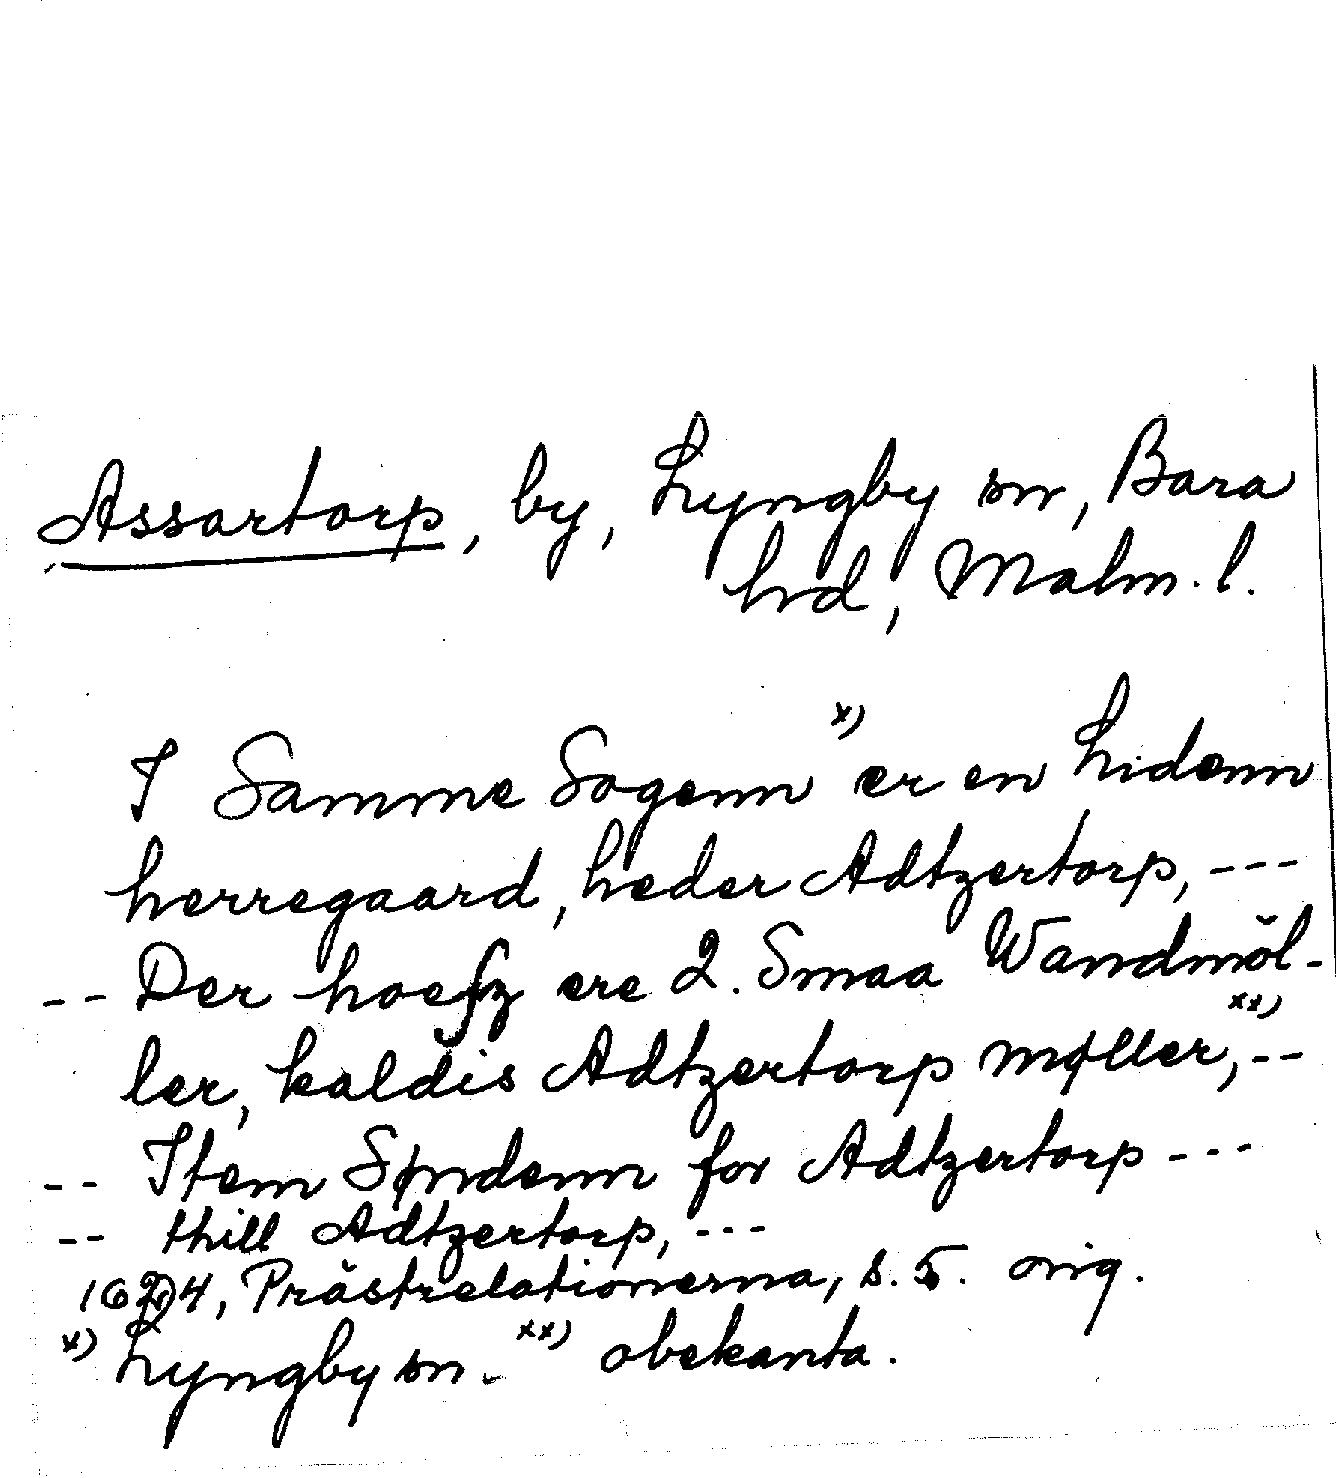 Assartorp, by, Lyngby sn, Bara
hrd, Malm. l.
I Samme Sogenn x) er en Lidenn
herregaard, heder Adtzertorp, ---
-- Der hoesz ere 2. Smaa Wandmŏl-
ler, kaldis Adtzertorp møller, xx) --
-- Item Synden for Adtzertorp ---
-- thill Adtzertorp, ---
1624, Prästrelationerna, s. 5. orig.
x) Lyngby sn. xx) obekanta.